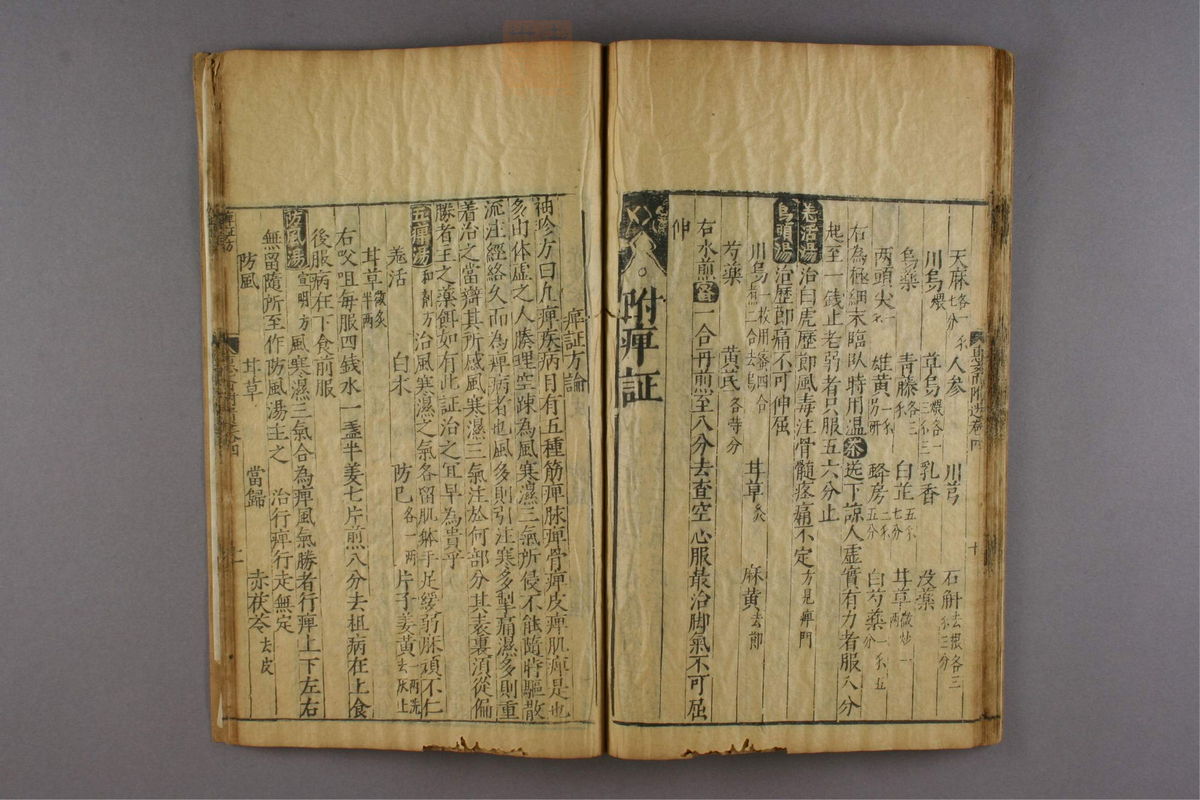 天麻七分 人参各一錢 川芎 石斛去根各三錢三分
川烏煨 草烏煨各一錢三 乳香 沒藥
烏藥 青藤各三錢 白芷五錢七分 甘草微炒一兩
兩頭尖一錢 雄黃一錢另研 蜂房二錢五分 白芍藥一錢五分
右為極細末臨臥時用温茶送下諒人虛實有力者服八分
起至一錢止老弱者只服五六分止
羌活湯 治白虎歷節風毒注骨髓疼痛不定方見痺門
烏頭湯 治歷節痛不可伸屈
川烏一枚用蜜四合煎二合去烏 甘草炙 麻黃去節
芍藥 黃芪各等分
右水煎蜜一合再煎至八分去查空心服最治脚氣不可屈
伸
附痺証
痺証方論
袖珍方曰凡痺疾病目有五種筋痺脉痺骨痺皮痺肌痺是也
多由体虛之人腠理空踈為風寒濕三氣所侵不能隨時驅散
流注經絡久而為痺病者也風多則引注寒多掣痛濕多則重
着治之當辯其所感風寒濕三氣注於何部分其表裏須從偏
勝者主之藥餌如有此証治之宜早為貴乎
五痛湯 和劑方 治風寒濕之氣各留肌躰手足緩弱脉頑不仁
羗活 白朮 防巳各一兩 片子姜黃一兩洗去灰土
甘草微炙半兩
右㕮咀每服四錢水一盞半姜七片煎八分去柤病在上食
後服病在下食前服
防風湯 宣明方 風寒濕三氣合為痺風氣勝者行痺上下左右
無留隨所至作防風湯主之 治行痺行走無定
防風 甘草 當歸 赤茯苓去皮